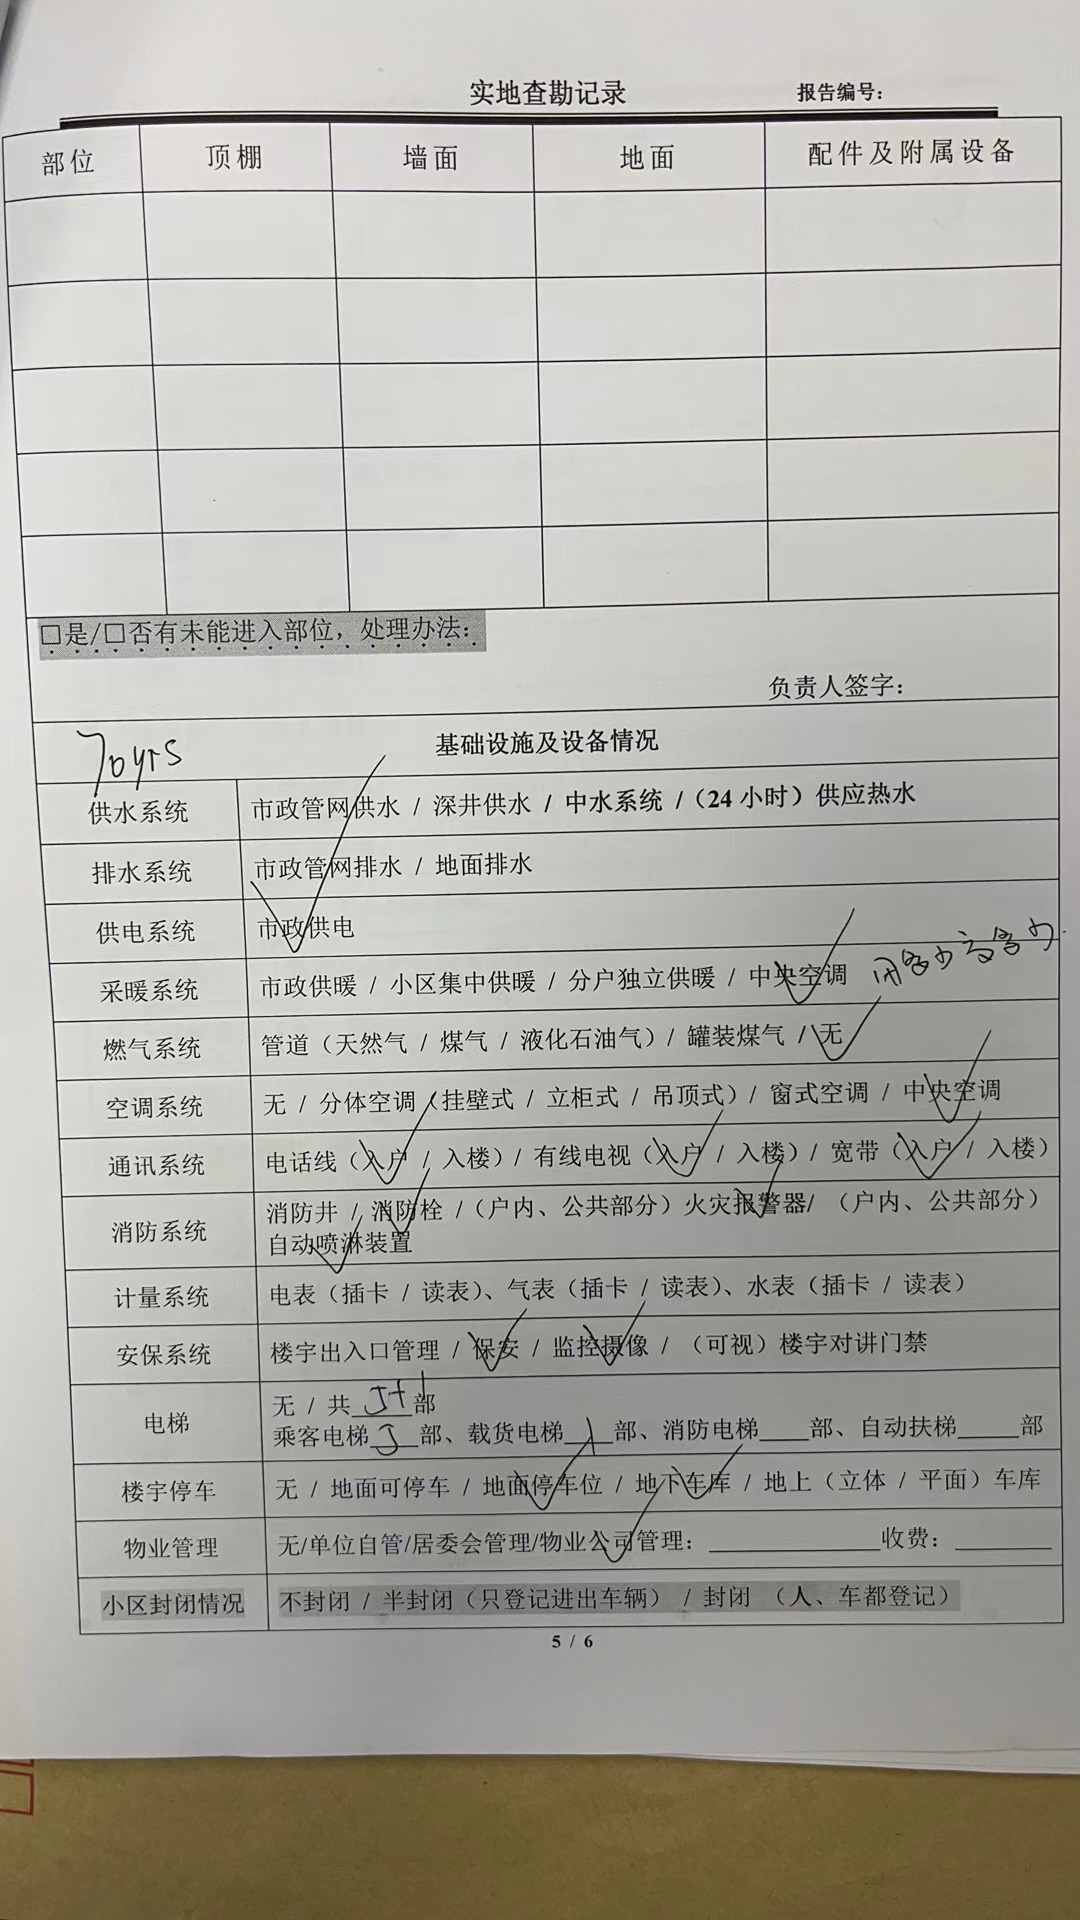 实地查勘记录 报告编号：
部位 顶棚 墙面 地面 配件及附属设备
□是/□否有未能进入部位，处理办法：
负责人签字：
70yrs 基础设施及设备情况
供水系统 市政管网供水 / 深井供水 / 中水系统 /（24小时）供应热水
排水系统 市政管网排水 / 地面排水
供电系统 市政供电
采暖系统 市政供暖 / 小区集中供暖 / 分户独立供暖 / 中央空调
燃气系统 管道（天然气 / 煤气 / 液化石油气）/ 罐装煤气 / 无
空调系统 无 / 分体空调（挂壁式 / 立柜式 / 吊顶式）/ 窗式空调 / 中央空调
通讯系统 电话线（入户 / 入楼）/ 有线电视（入户 / 入楼）/ 宽带（入户 / 入楼）
消防系统 消防井 / 消防栓 /（户内、公共部分）火灾报警器/ （户内、公共部分）
自动喷淋装置
计量系统 电表（插卡 / 读表）、气表（插卡 / 读表）、水表（插卡 / 读表）
安保系统 楼宇出入口管理 / 保安 / 监控摄像 / （可视）楼宇对讲门禁
电梯 无 / 共____部
乘客电梯____部、载货电梯____部、消防电梯____部、自动扶梯____部
楼宇停车 无 / 地面可停车 / 地面停车位 / 地下车库 / 地上（立体 / 平面）车库
物业管理 无/单位自管/居委会管理/物业公司管理：______________收费：________
小区封闭情况 不封闭 / 半封闭（只登记进出车辆） / 封闭 （人、车都登记）
5 / 6